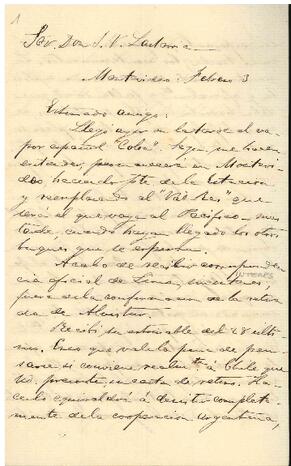 1
Señ. Don J. V. Lastarria
Montevideo: Febrero 3
Estimado amigo:
Llegó ayer en la tarde el va-
por español "Colon". Segun me hacen
entender, permanecerá en Montevi-
deo haciendo jefe de la Estacion
y reemplazando al
que
será el que vaya al Pacífico mas
tarde, cuando hayan llegado los otros
buques que se esperan.
Acabo de recibir correspondencia
oficial de Lima,
fuera de la confirmacion de la retira-
da de
INTERES
Recibí su estimable del 28 ulti-
mo. Creo que vale la pena de pen-
sarse si conviene realmente á Chile que
Ud. presente su carta de retiro. Ha-
cerlo equivaldria á desistir completa-
mente de la cooperacion arjentina,